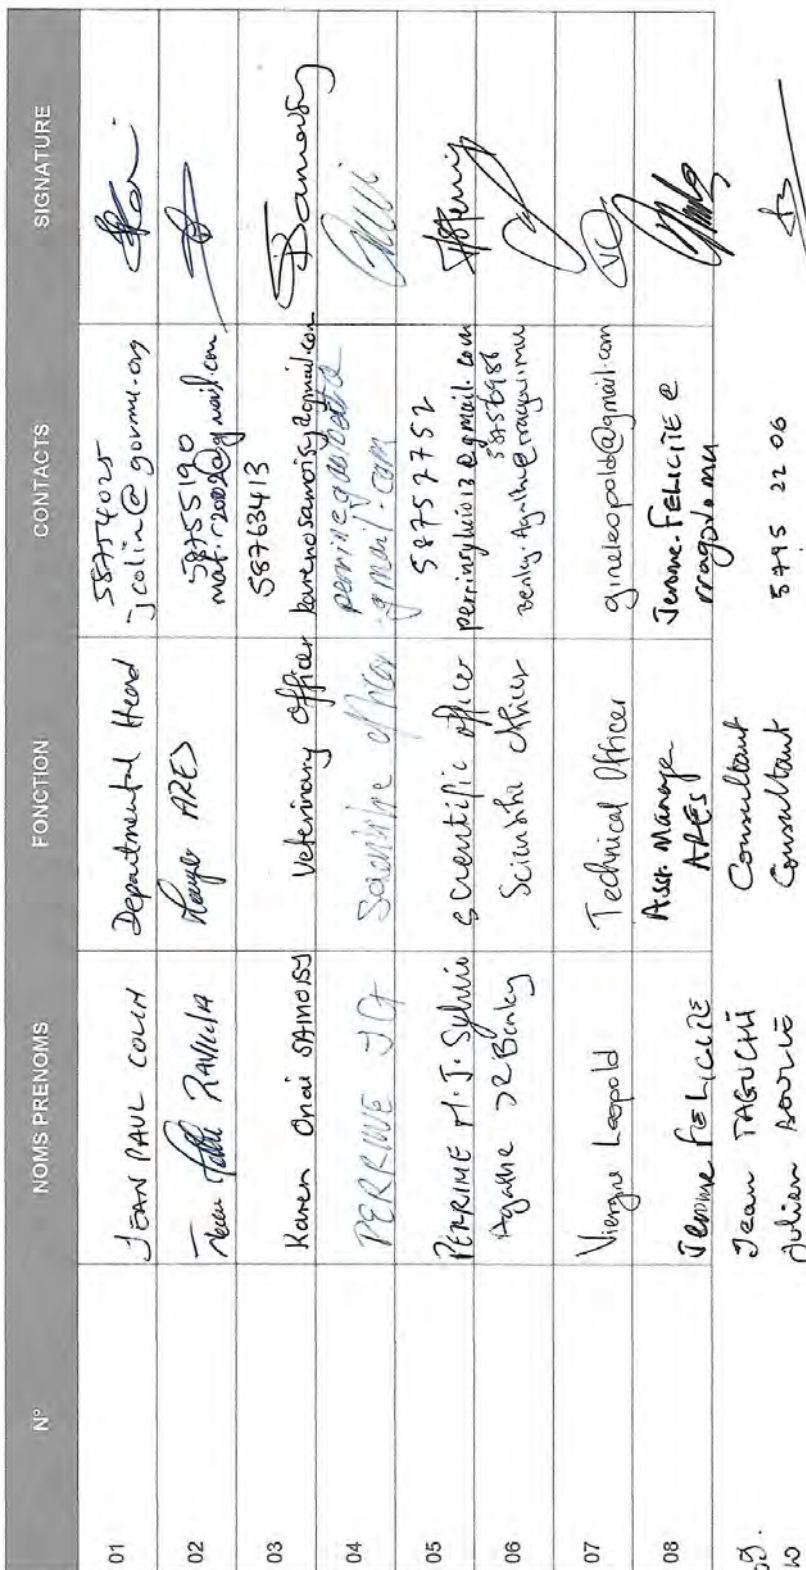 N° NOMS PRENOMS FONCTION CONTACTS SIGNATURE
01 JEAN PAUL COLIN Departmental Head 58754025
jcolin@govmu.org
02 RAVINA ARES 58755190
03 Karen Onai SAMOISY Veterinary Officer 58763413
karenosamoisy@gmail.com
04 PERRINE JG Scientific officer
gmail.com
05 PERRINE M.J. Sylvio Scientific officer 58757752
perrinsylvio13@gmail.com
06 Agathe Benky Scientific Officer
07 Viergne Leopold Technical Officer gineleopold@gmail.com
08 Jerome FELICITE Asst. Manager
ARES Jerome.FELICITE@
rragov.mu
09. Jean TAGUCHI Consultant
10 Julien Consultant 5795 22 06